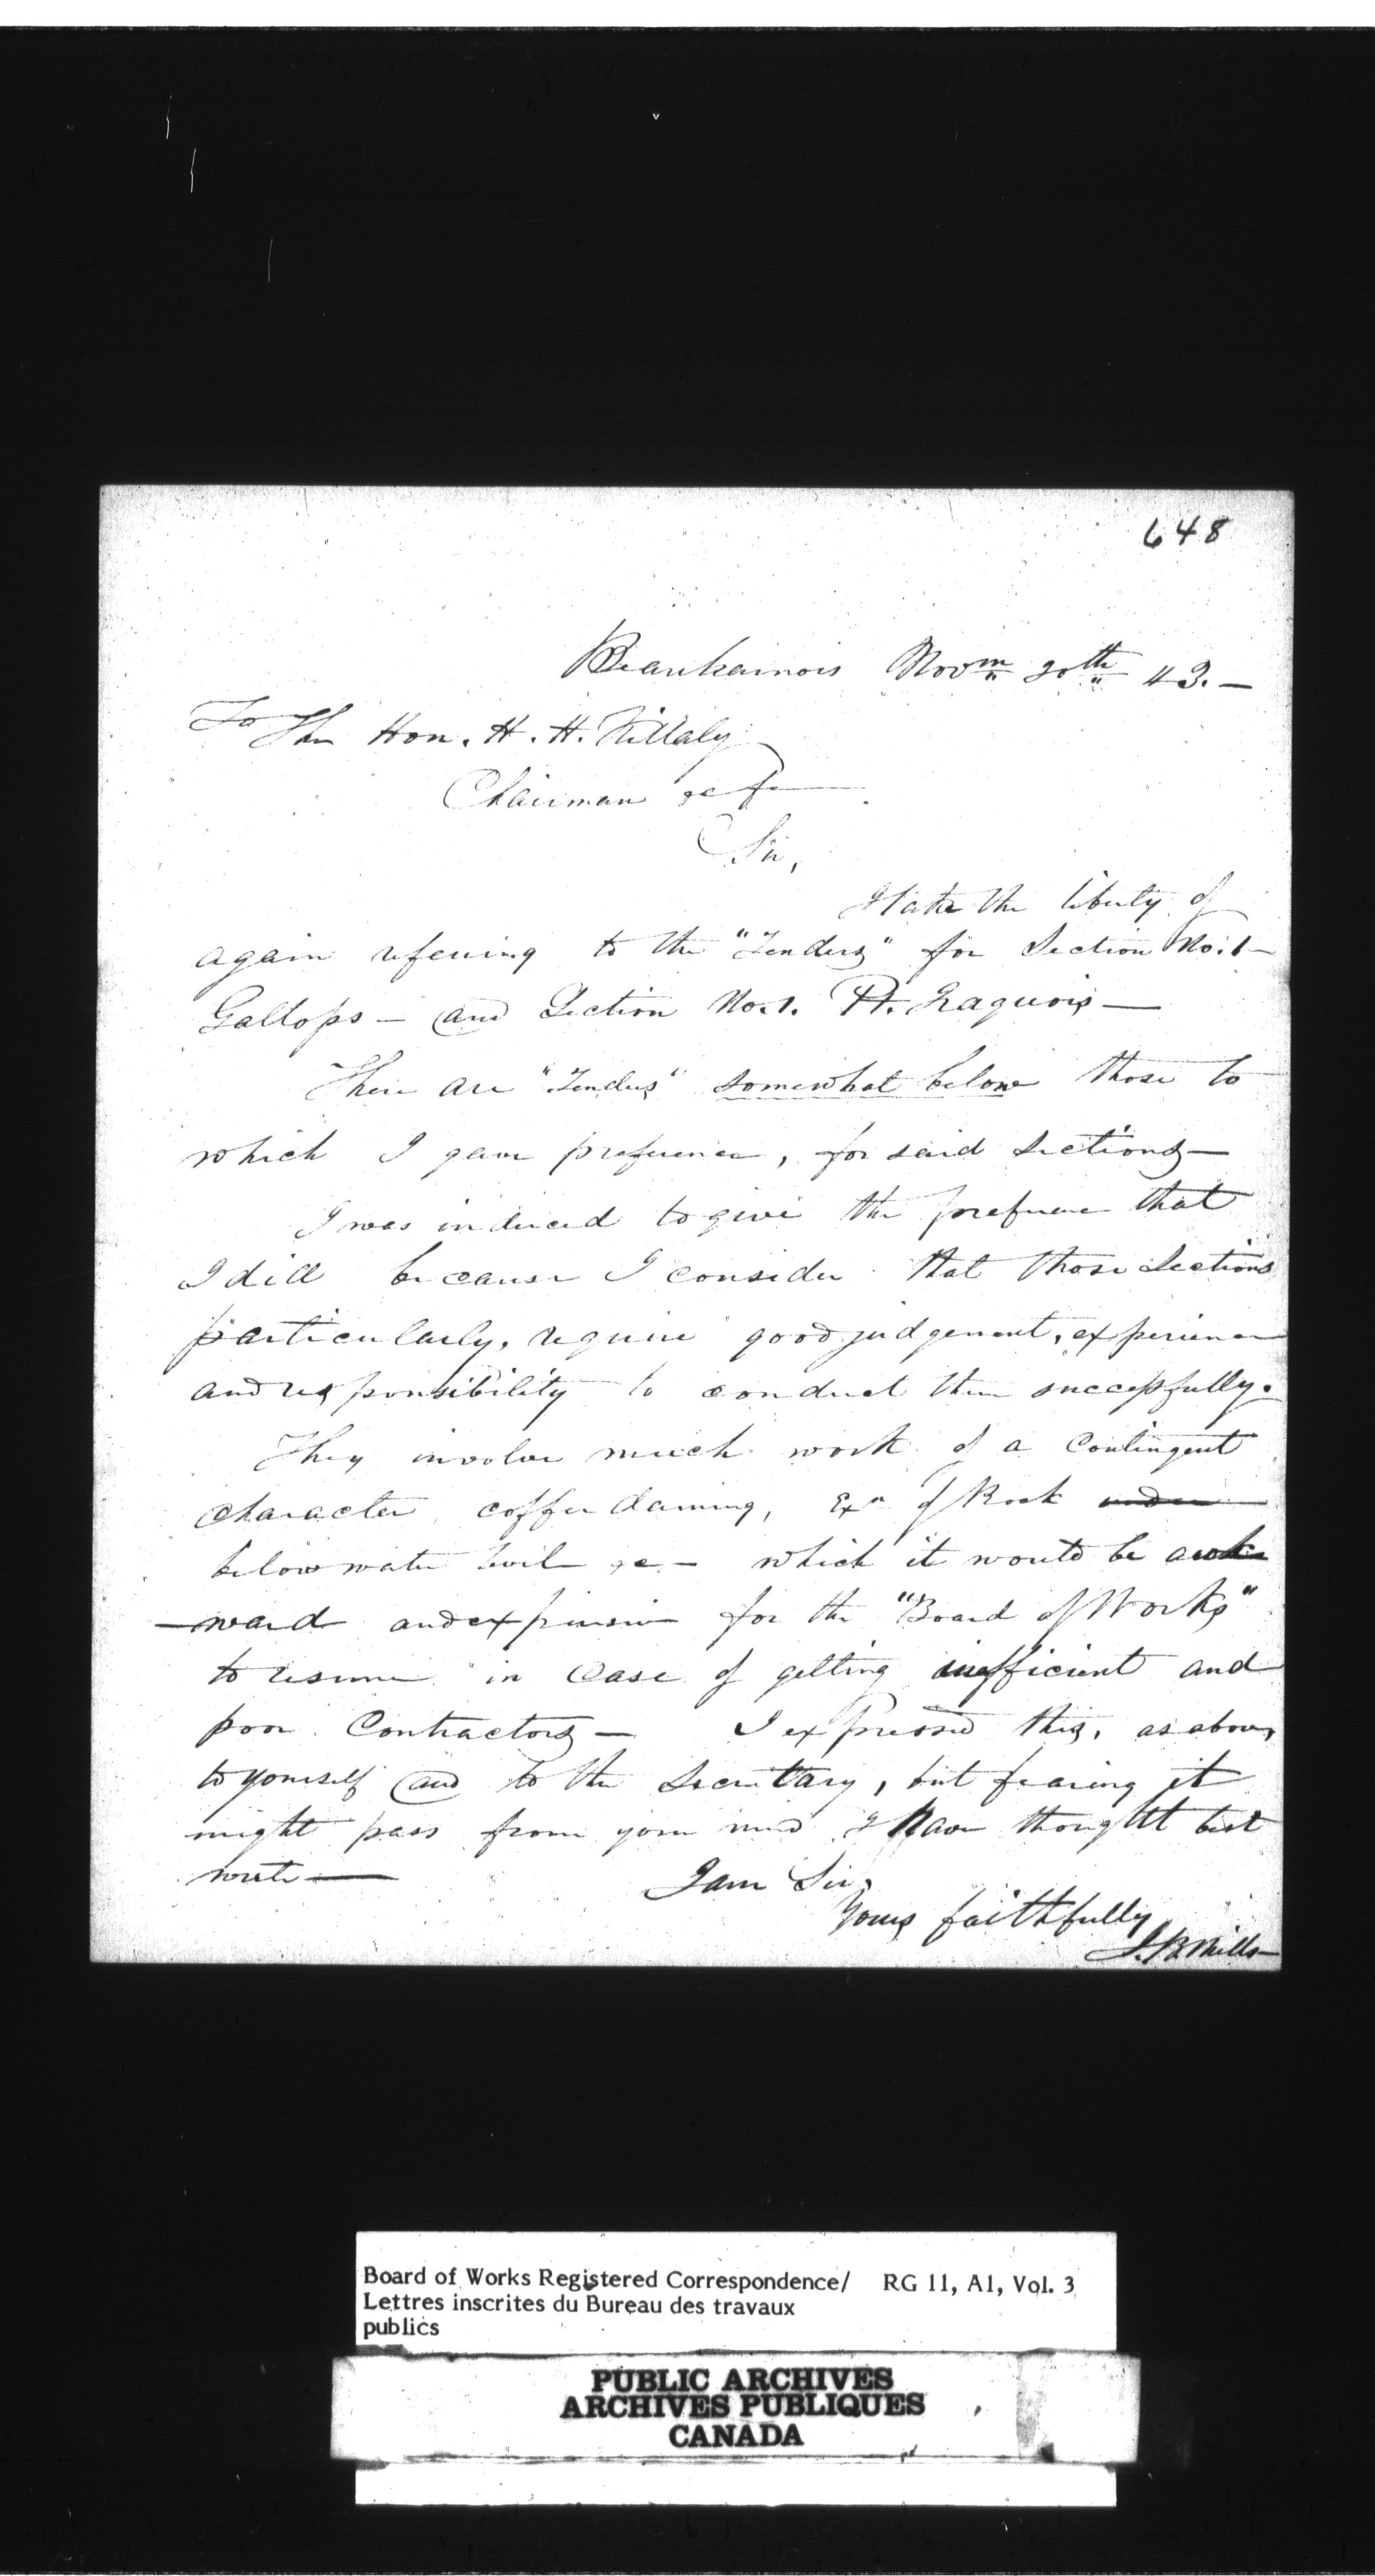 648
Beauharnois Novm 20th 43. —
To The Hon. H. H. Killaly
Chairman &c &c
Sir,
I take the liberty of
again referring to the "Tenders" for Section No: 1 —
Gallops — and Section No. 1. Pt. Iraquois —
There are "Tenders" somewhat below those to
which I gave preference, for said Sections —
I was induced to give the preference that
I did because I consider that those Sections
particularly, require good judgement, experience
and responsibility to conduct them successfully.
They involve much work of a Contingent
character coffer daming, Exn of Rock under
below water level &c — which it would be awk
—ward and expensive for the "Board of Works"
to resume in Case of getting inefficient and
poor Contractors — I expressed this, as above,
to yourself and to the Secretary, but fearing it
might pass from your mind I have thought best
write —
I am Sir,
Yours faithfully
J. B. Mills
Board of Works Registered Correspondence/ RG 11, A1, Vol. 3
Lettres inscrites du Bureau des travaux
publics
PUBLIC ARCHIVES
ARCHIVES PUBLIQUES
CANADA